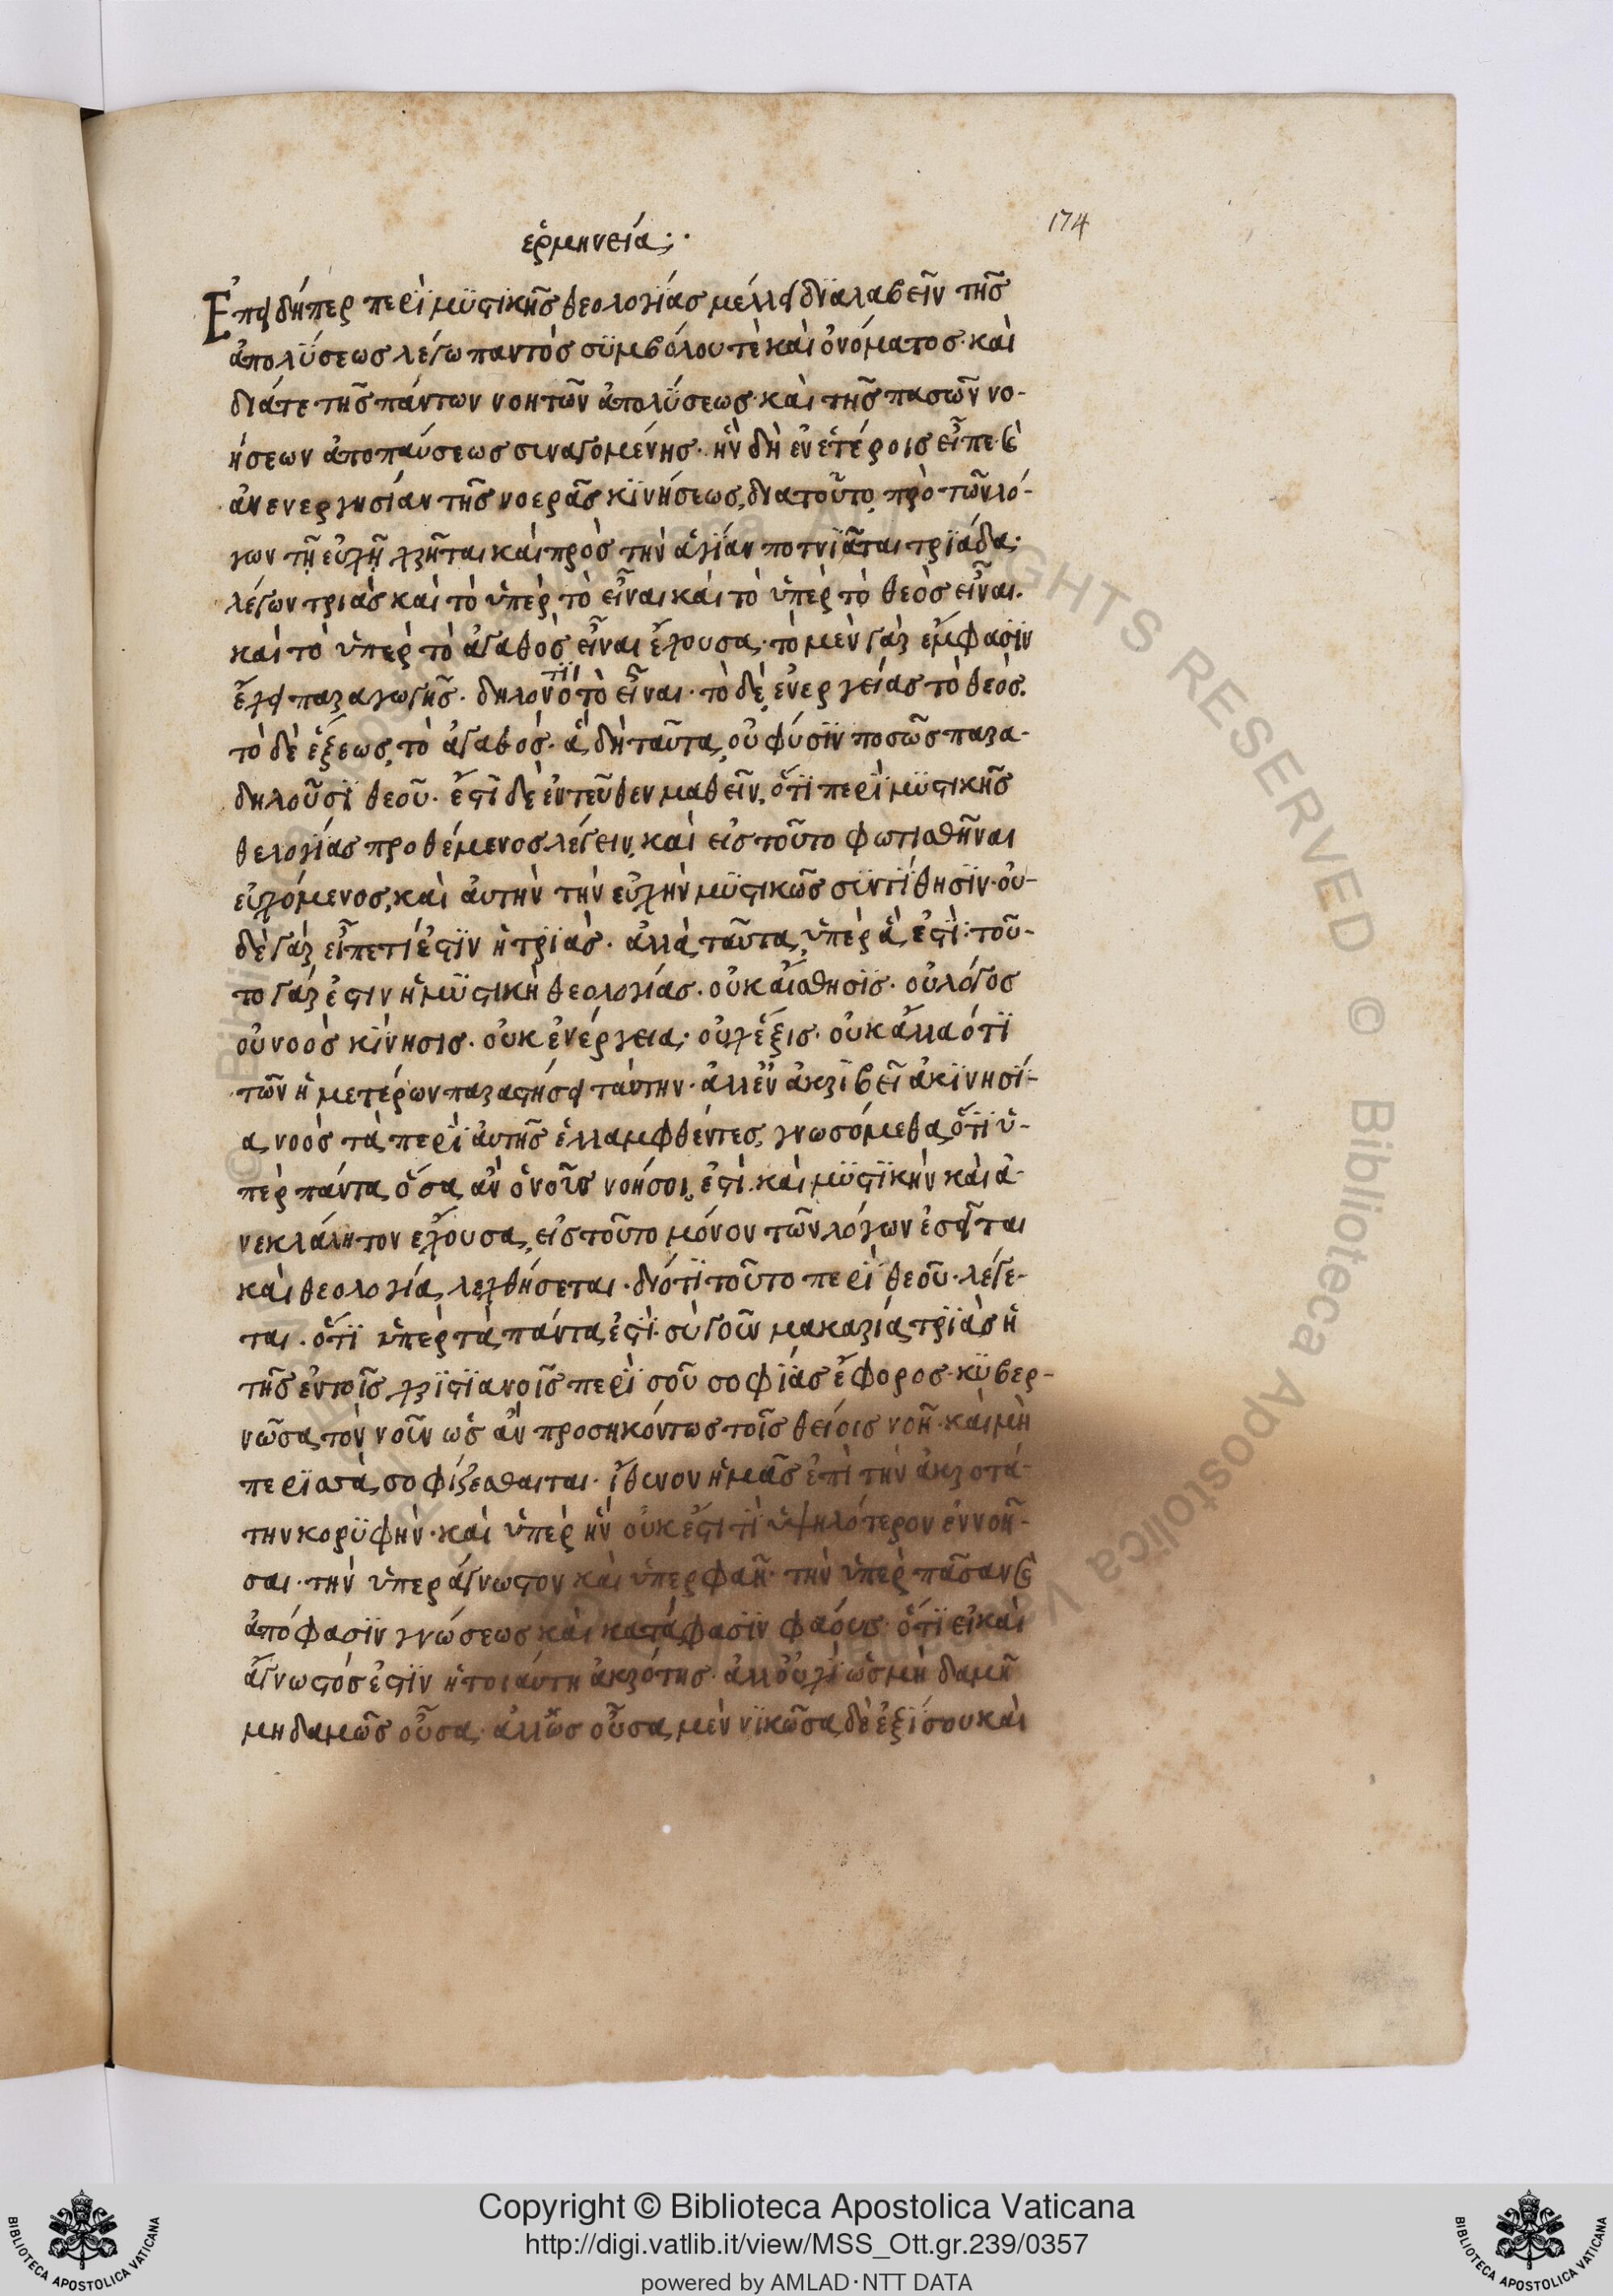 174
ἑρμηνεία:·
Ἐπειδήπερ περὶ μϋστϊκῆς θεολογίας μέλλει δϊαλαβεῖν τῆς
ἀπολϋσεως λέγω παντὸς σϋμβόλου τὲ καὶ ὀνόματος· καὶ
διάτε τῆς πάντων νοητῶν ἀπολύσεως· καὶ τῆς πασῶν νο-
ήσεων ἀποπαύσεως συναγομένης· ἣν δὴ ἐν ἑτέροις εἶπε καὶ
ἀνενεργησίαν τῆς νοερᾶς κϊνήσεως, διατοῦτο, πρὸ τῶν λό-
γων τῇ εὐχῇ χρῆται καὶ πρὸς τὴν ἁγίαν ποτνϊᾶται τρϊάδα·
λέγων τριὰς καὶ τὸ ὑπὲρ τὸ εἶναι καὶ τὸ ὑπὲρ τὸ θεὸς εἶναι.
καὶ τὸ ὑπὲρ τὸ ἀγαθὸς εἶναι ἔχουσα· τὸ μὲν γὰρ ἔμφασϊν
ἔχει παραγωγῆς· δηλονότϊ τὸ εἶναι· τὸ δὲ, ἐνεργείας τὸ θεός.
τὸ δὲ ἕξεως, τὸ ἀγαθός· ἃ δὴ ταῦτα, οὐ φύσϊν ποσῶς παρα-
δηλοῦσϊ θεοῦ· ἔστϊ δὲ ἐντεῦθεν μαθεῖν, ὅτϊ περὶ μϋστικῆς
θελογίας προθέμενος λέγειν, καὶ εἰς τοῦτο φωτισθῆναι
εὐχόμενος, καὶ αὐτὴν τὴν εὐχὴν μϋστικῶς σϋντίθησϊν· οὐ-
δὲ γὰρ εἶπε τί ἐστϊν ἡ τρϊὰς· ἀλλὰ ταῦτα, ὑπὲρ ἅ ἐστϊ· τοῦ-
το γάρ ἐστιν ἡ μϋστικὴ θεολογίας· οὐκ αἴσθησϊς· οὐ λόγος
οὐ νοὸς κίνησις· οὐκ ἐνέργεια· οὐχ ἕξις· οὐκ ἄλλα ότϊ
τῶν ἡμετέρων παραστήσει ταύτην· ἀλλ' ἐν ἀκρϊβεῖ ἀκϊνησί-
α, νοὸς τὰ περὶ αὐτῆς ἐλλαμφθέντες, γνωσόμεθα, ὅτϊ ὑ-
πὲρ πάντα ὅσα ἂν ὁ νοῦς νοήσοι, ἐστϊ. καὶ μϋστϊκὴν καὶ ἀ-
νεκλάλητον ἔχουσα, εἰς τοῦτο μόνον τῶν λόγων ἐσεῖται
καὶ θεολογία, λεχθήσεται· διότϊ τοῦτο περὶ θεοῦ· λέγε-
ται· ὅτϊ ὑπὲρ τὰ πάντα ἐστϊ· σὺ γοῦν μακαρία τρϊὰς ἡ
τῆς ἐν τοῖς χρϊστϊανοῖς περὶ σοῦ σοφϊας ἔφορος· κϋβερ-
νῶσα τὸν νοῦν ὡς ἂν προσηκόντως τοῖς θείοις νοῇ· καὶ μὴ
περϊσσὰ, σοφίζεσθαιται· ἴθυνον ἡμᾶς ἐπὶ τὴν ἀκροτά-
την κορϋφὴν· καὶ ὑπὲρ ἣν οὐκ ἔστι τϊ ὑψηλότερον ἐννοῆ-
σαι· τὴν ὑπεράγνωστον καὶ ὑπερφαῆ· τὴν ὑπὲρ πᾶσαν καὶ
ἀπόφασϊν γνώσεως καὶ κατάφασϊν φάους· ὅτϊ εἰ καὶ
ἄγνωστός ἐστϊν ἡ τοιαύτη ἀκρότης· ἀλλ' οὐχϊ ὡς μὴ δαμῆ
μηδαμῶς οὖσα· ἀλλ' ὡς οὖσα, μὲν νϊκῶσα δὲ ἐξίσου καὶ
© Biblioteca Apostolica Vaticana ALL RIGHTS RESERVED
© Biblioteca Apostolica Vaticana
BIBLIOTECA APOSTOLICA VATICANA
Copyright © Biblioteca Apostolica Vaticana
http://digi.vatlib.it/view/MSS_Ott.gr.239/0357
powered by AMLAD·NTT DATA
BIBLIOTECA APOSTOLICA VATICANA